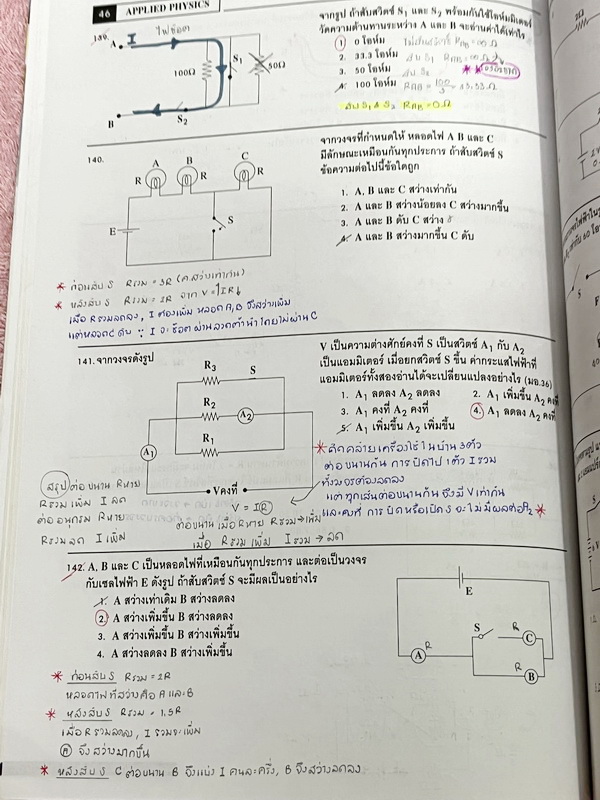 46 APPLIED PHYSICS
139.
A I ไฟช็อต
S1
100Ω
50Ω
B
S2
จากรูป ถ้าสับสวิตช์ S1 และ S2 พร้อมกันใช้โอห์มมิเตอร์
วัดความต้านทานระหว่าง A และ B จะอ่านค่าได้เท่าไร
1. 0 โอห์ม
2. 33.3 โอห์ม
3. 50 โอห์ม
4. 100 โอห์ม
สับ S1 & S2 RAB = 0 Ω
140.
A B C
R R R
E
S
จากวงจรที่กำหนดให้ หลอดไฟ A B และ C
มีลักษณะเหมือนกันทุกประการ ถ้าสับสวิตช์ S
ข้อความต่อไปนี้ข้อใดถูก
1. A, B และ C สว่างเท่ากัน
2. A และ B สว่างน้อยลง C สว่างมากขึ้น
3. A และ B ดับ C สว่าง
4. A และ B สว่างมากขึ้น C ดับ
* ก่อนสับ S Rรวม = 3R (A สว่างเท่ากัน)
* หลังสับ S Rรวม = 2R จาก V = IR
เมื่อ Rรวมลดลง, I ต้องเพิ่ม หลอด A, B จึงสว่างเพิ่ม
แต่หลอด C ดับ ∵ I จะช็อตผ่านลวดตัวนำ โดยไม่ผ่าน C
141. จากวงจรดังรูป
R3 S
R2
A2
R1
A1
V คงที่
V เป็นความต่างศักย์คงที่ S เป็นสวิตช์ A1 กับ A2
เป็นแอมมิเตอร์ เมื่อยกสวิตช์ S ขึ้น ค่ากระแสไฟฟ้าที่
แอมมิเตอร์ทั้งสองอ่านได้จะเปลี่ยนแปลงอย่างไร (มอ.36)
1. A1 ลดลง A2 ลดลง 2. A1 เพิ่มขึ้น A2 คงที่
3. A1 คงที่ A2 คงที่ 4. A1 ลดลง A2 คงที่
5. A1 เพิ่มขึ้น A2 เพิ่มขึ้น
* คิดคล้ายเครื่องใช้ในบ้าน 3 ตัว
ต่อขนานกัน การปิดไป 1 ตัว I รวม
ทั้งวงจรต้องลดลง
แต่ทุกเส้นต่อขนานกัน จึงมี V เท่ากัน
และคงที่ การปิดหรือเปิด S จะไม่มีผลต่อ A2 *
สรุป ต่อขนาน R หาย
Rรวม เพิ่ม I ลด
ต่ออนุกรม R หาย
Rรวม ลด I เพิ่ม
V = IR
ต่อขนาน เมื่อ R หาย Rรวม → เพิ่ม
เมื่อ Rรวม เพิ่ม Iรวม → ลด
142. A, B และ C เป็นหลอดไฟที่เหมือนกันทุกประการ และต่อเป็นวงจร
กับเซลไฟฟ้า E ดังรูป ถ้าสับสวิตช์ S จะมีผลเป็นอย่างไร
1. A สว่างเท่าเดิม B สว่างลดลง
2. A สว่างเพิ่มขึ้น B สว่างลดลง
3. A สว่างเพิ่มขึ้น B สว่างเพิ่มขึ้น
4. A สว่างลดลง B สว่างเพิ่มขึ้น
E
S R
C
R
A
R
B
* ก่อนสับ S Rรวม = 2R
หลอดไฟที่สว่างคือ A และ B
* หลังสับ S Rรวม = 1.5R
เมื่อ Rรวมลดลง, I รวมจะเพิ่ม
A จึงสว่างมากขึ้น
* หลังสับ S C ต่อขนาน B จึงแบ่ง I คนละครึ่ง, B จึงสว่างลดลง